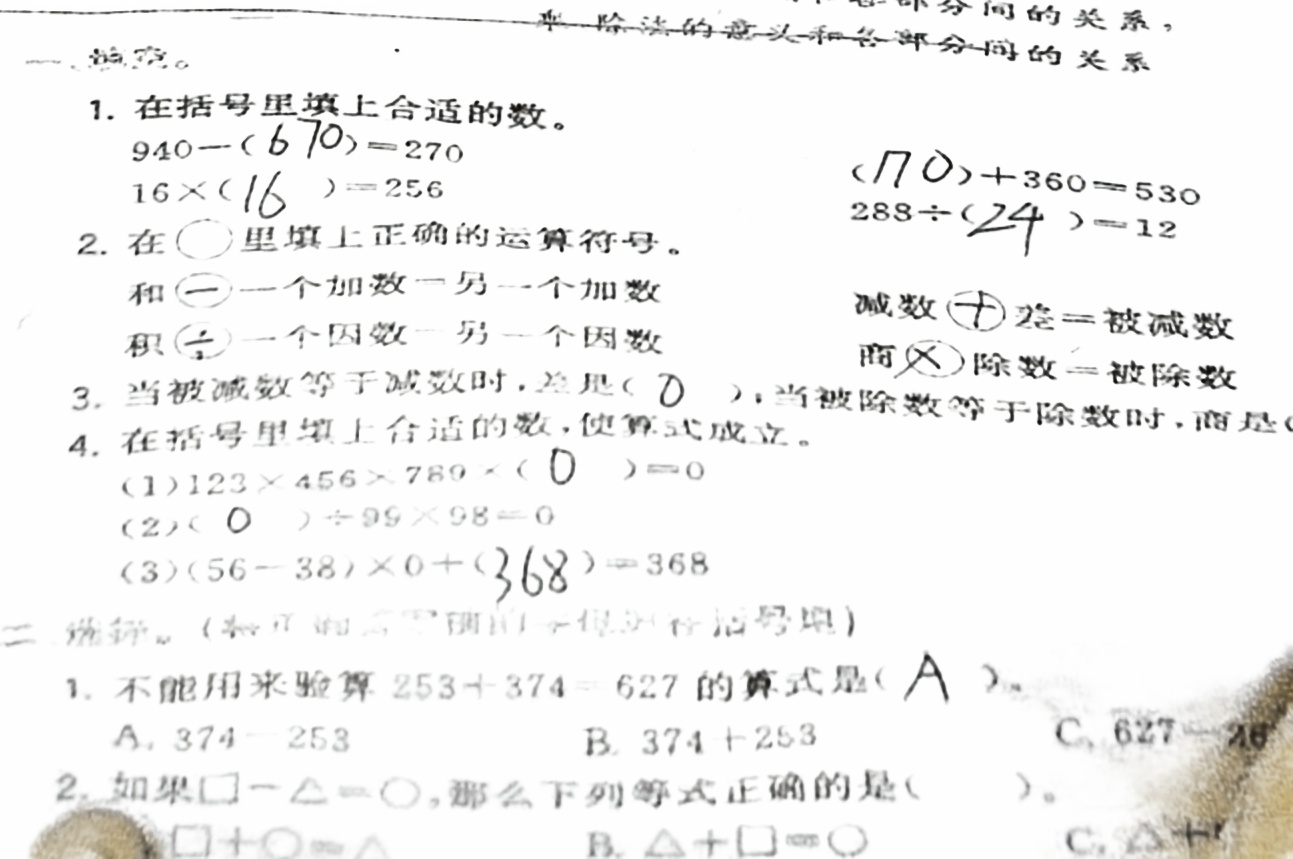 部分间的关系，
除法的意义和各部分间的关系
一、填空。
1. 在括号里填上合适的数。
940－(670)＝270
(170)＋360＝530
16×(16)＝256
288÷(24)＝12
2. 在○里填上正确的运算符号。
和－一个加数＝另一个加数
减数＋差＝被减数
积÷一个因数＝另一个因数
商×除数＝被除数
3. 当被减数等于减数时，差是(0)，当被除数等于除数时，商是(
4. 在括号里填上合适的数，使算式成立。
(1)123×456×789×(0)＝0
(2)(0)÷99×98＝0
(3)(56－38)×0＋(368)＝368
二、选择。(括号里)
1. 不能用来验算 253＋374＝627 的算式是(A)。
A. 374－253
B. 374＋253
C. 627－
2. 如果□－△＝○，那么下列等式正确的是( )。
□＋○＝△
B. △＋□＝○
C. △＋